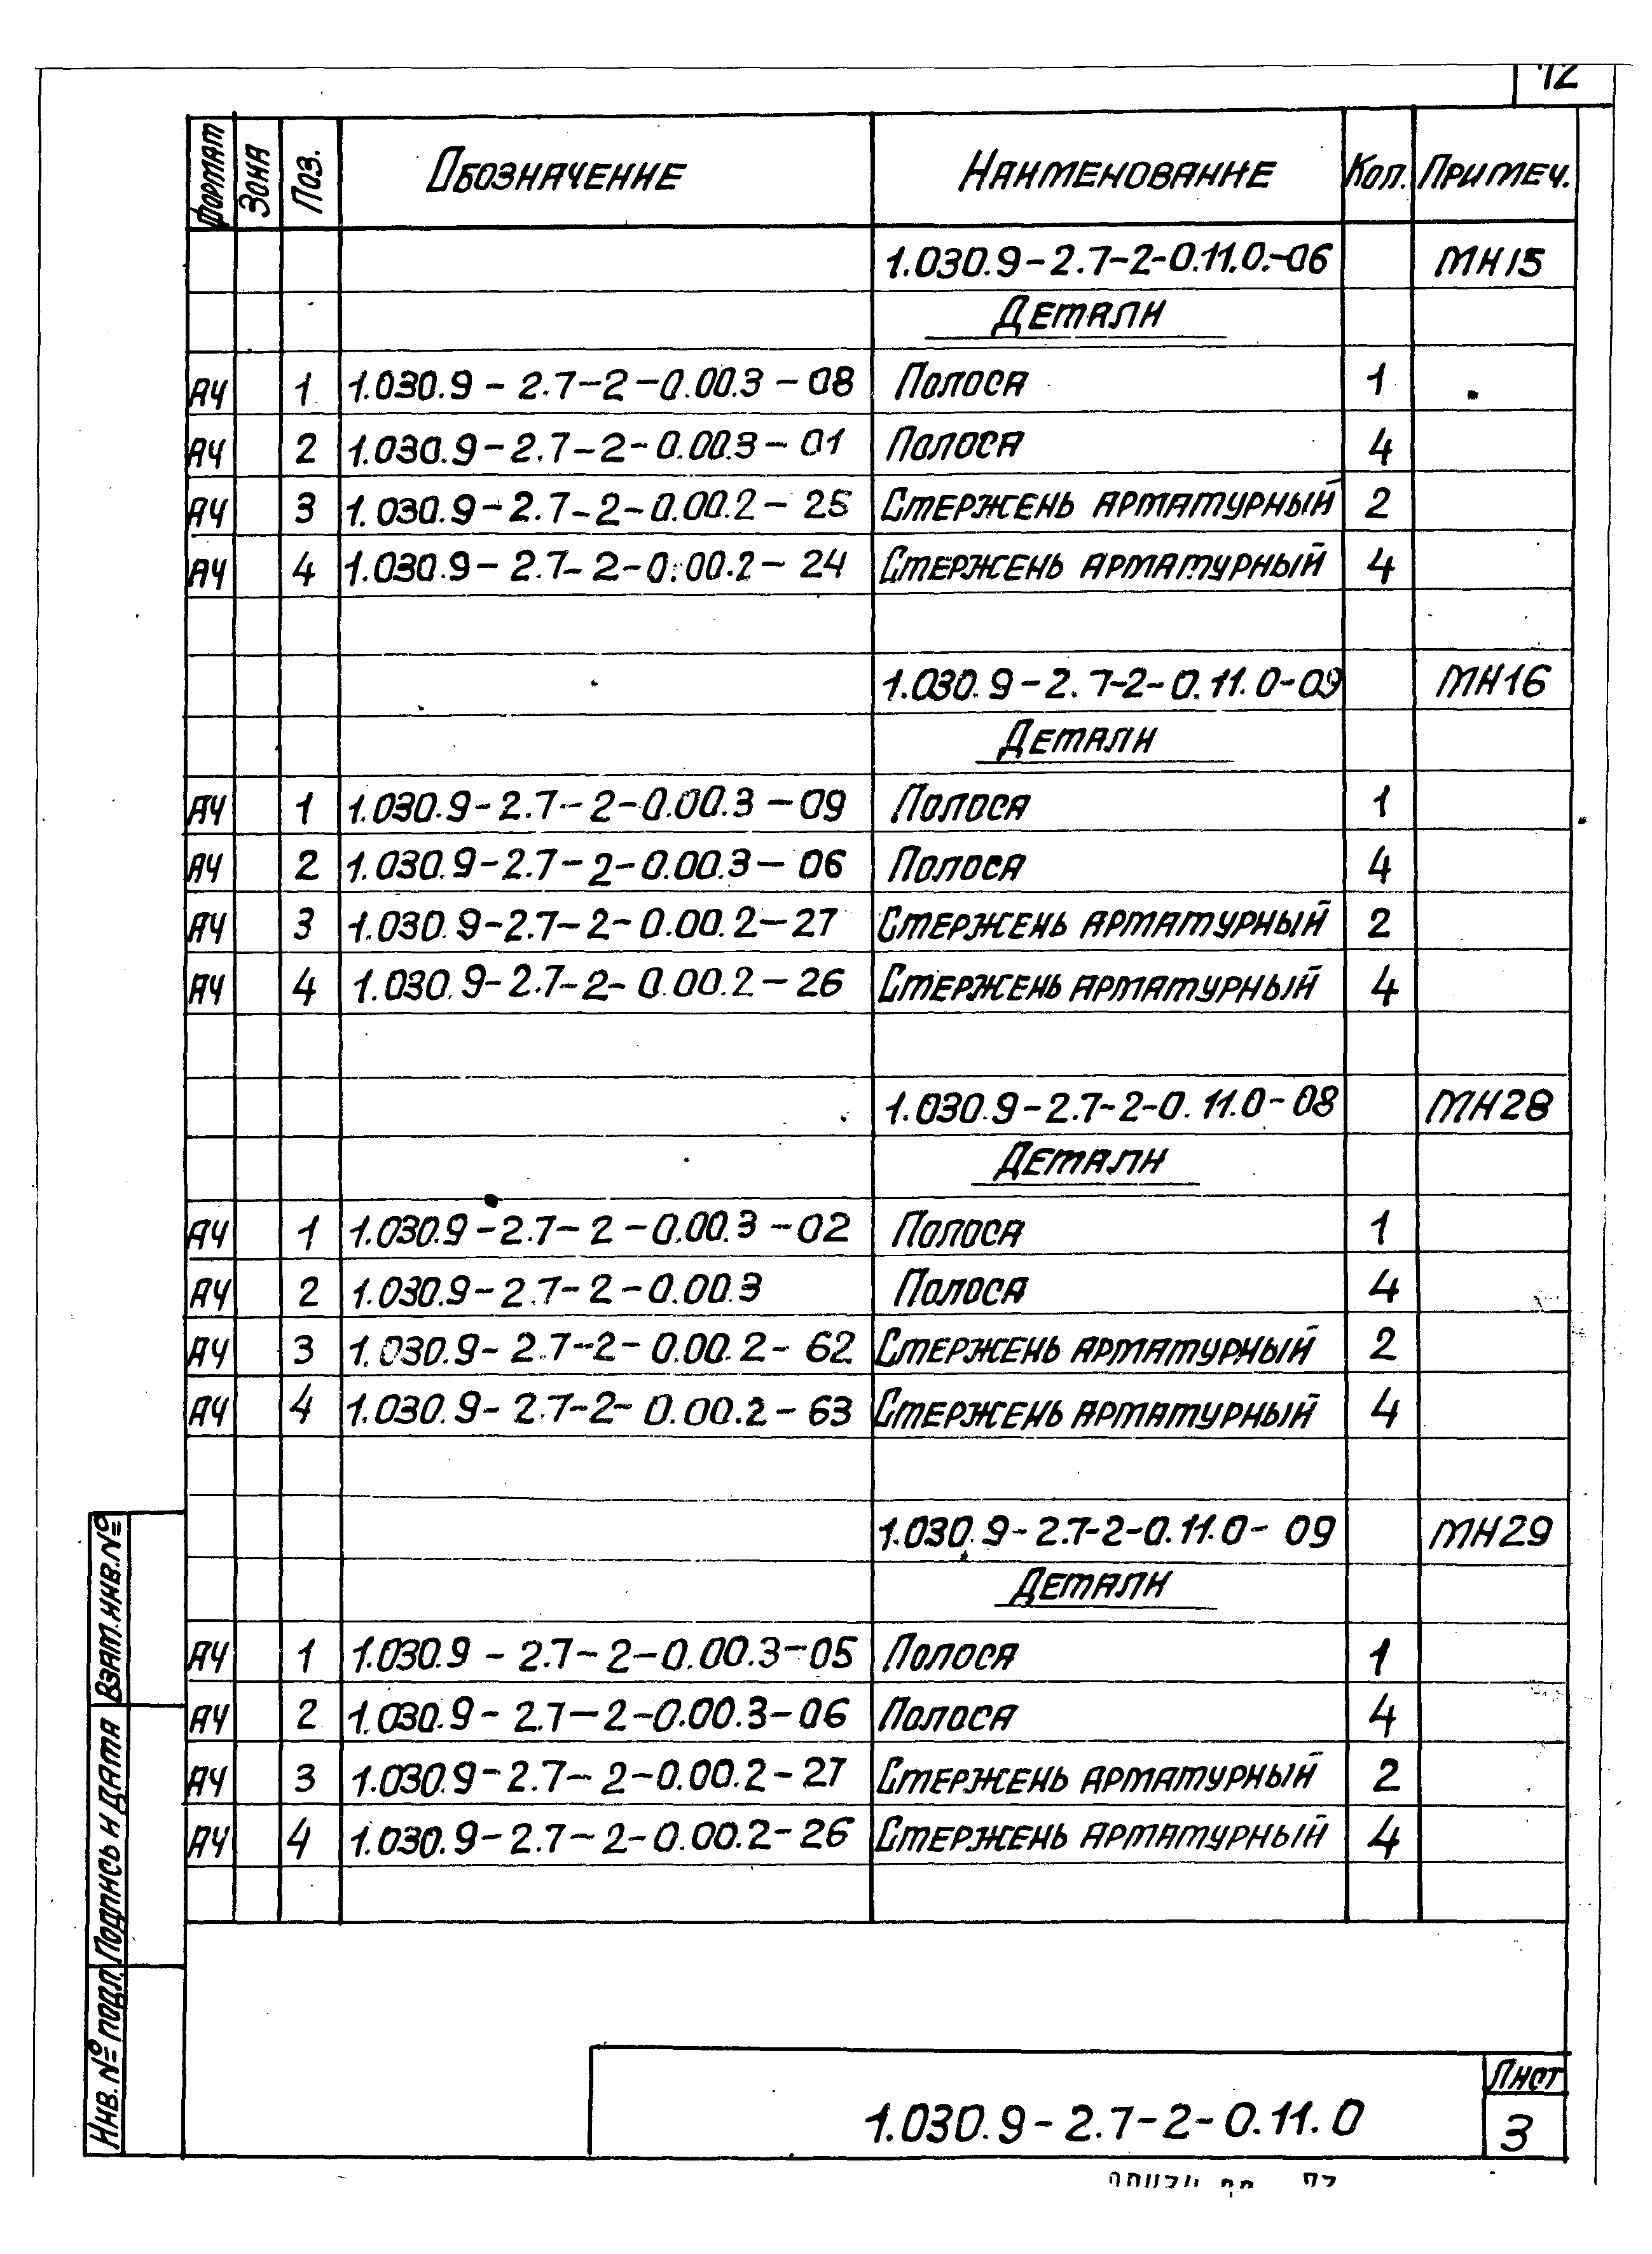 72
Формат Зона Поз. Обозначение Наименование Кол. Примеч.
1.030.9-2.7-2-0.11.0.-06 МН15
Детали
А4 1 1.030.9-2.7-2-0.00.3-08 Полоса 1
А4 2 1.030.9-2.7-2-0.00.3-01 Полоса 4
А4 3 1.030.9-2.7-2-0.00.2-25 Стержень арматурный 2
А4 4 1.030.9-2.7-2-0.00.2-24 Стержень арматурный 4
1.030.9-2.7-2-0.11.0-09 МН16
Детали
А4 1 1.030.9-2.7-2-0.00.3-09 Полоса 1
А4 2 1.030.9-2.7-2-0.00.3-06 Полоса 4
А4 3 1.030.9-2.7-2-0.00.2-27 Стержень арматурный 2
А4 4 1.030.9-2.7-2-0.00.2-26 Стержень арматурный 4
1.030.9-2.7-2-0.11.0-08 МН28
Детали
А4 1 1.030.9-2.7-2-0.00.3-02 Полоса 1
А4 2 1.030.9-2.7-2-0.00.3 Полоса 4
А4 3 1.030.9-2.7-2-0.00.2-62 Стержень арматурный 2
А4 4 1.030.9-2.7-2-0.00.2-63 Стержень арматурный 4
1.030.9-2.7-2-0.11.0-09 МН29
Детали
А4 1 1.030.9-2.7-2-0.00.3-05 Полоса 1
А4 2 1.030.9-2.7-2-0.00.3-06 Полоса 4
А4 3 1.030.9-2.7-2-0.00.2-27 Стержень арматурный 2
А4 4 1.030.9-2.7-2-0.00.2-26 Стержень арматурный 4
Взам.инв.№
Подпись и дата
Инв.№ подл.
1.030.9-2.7-2-0.11.0
Лист
3